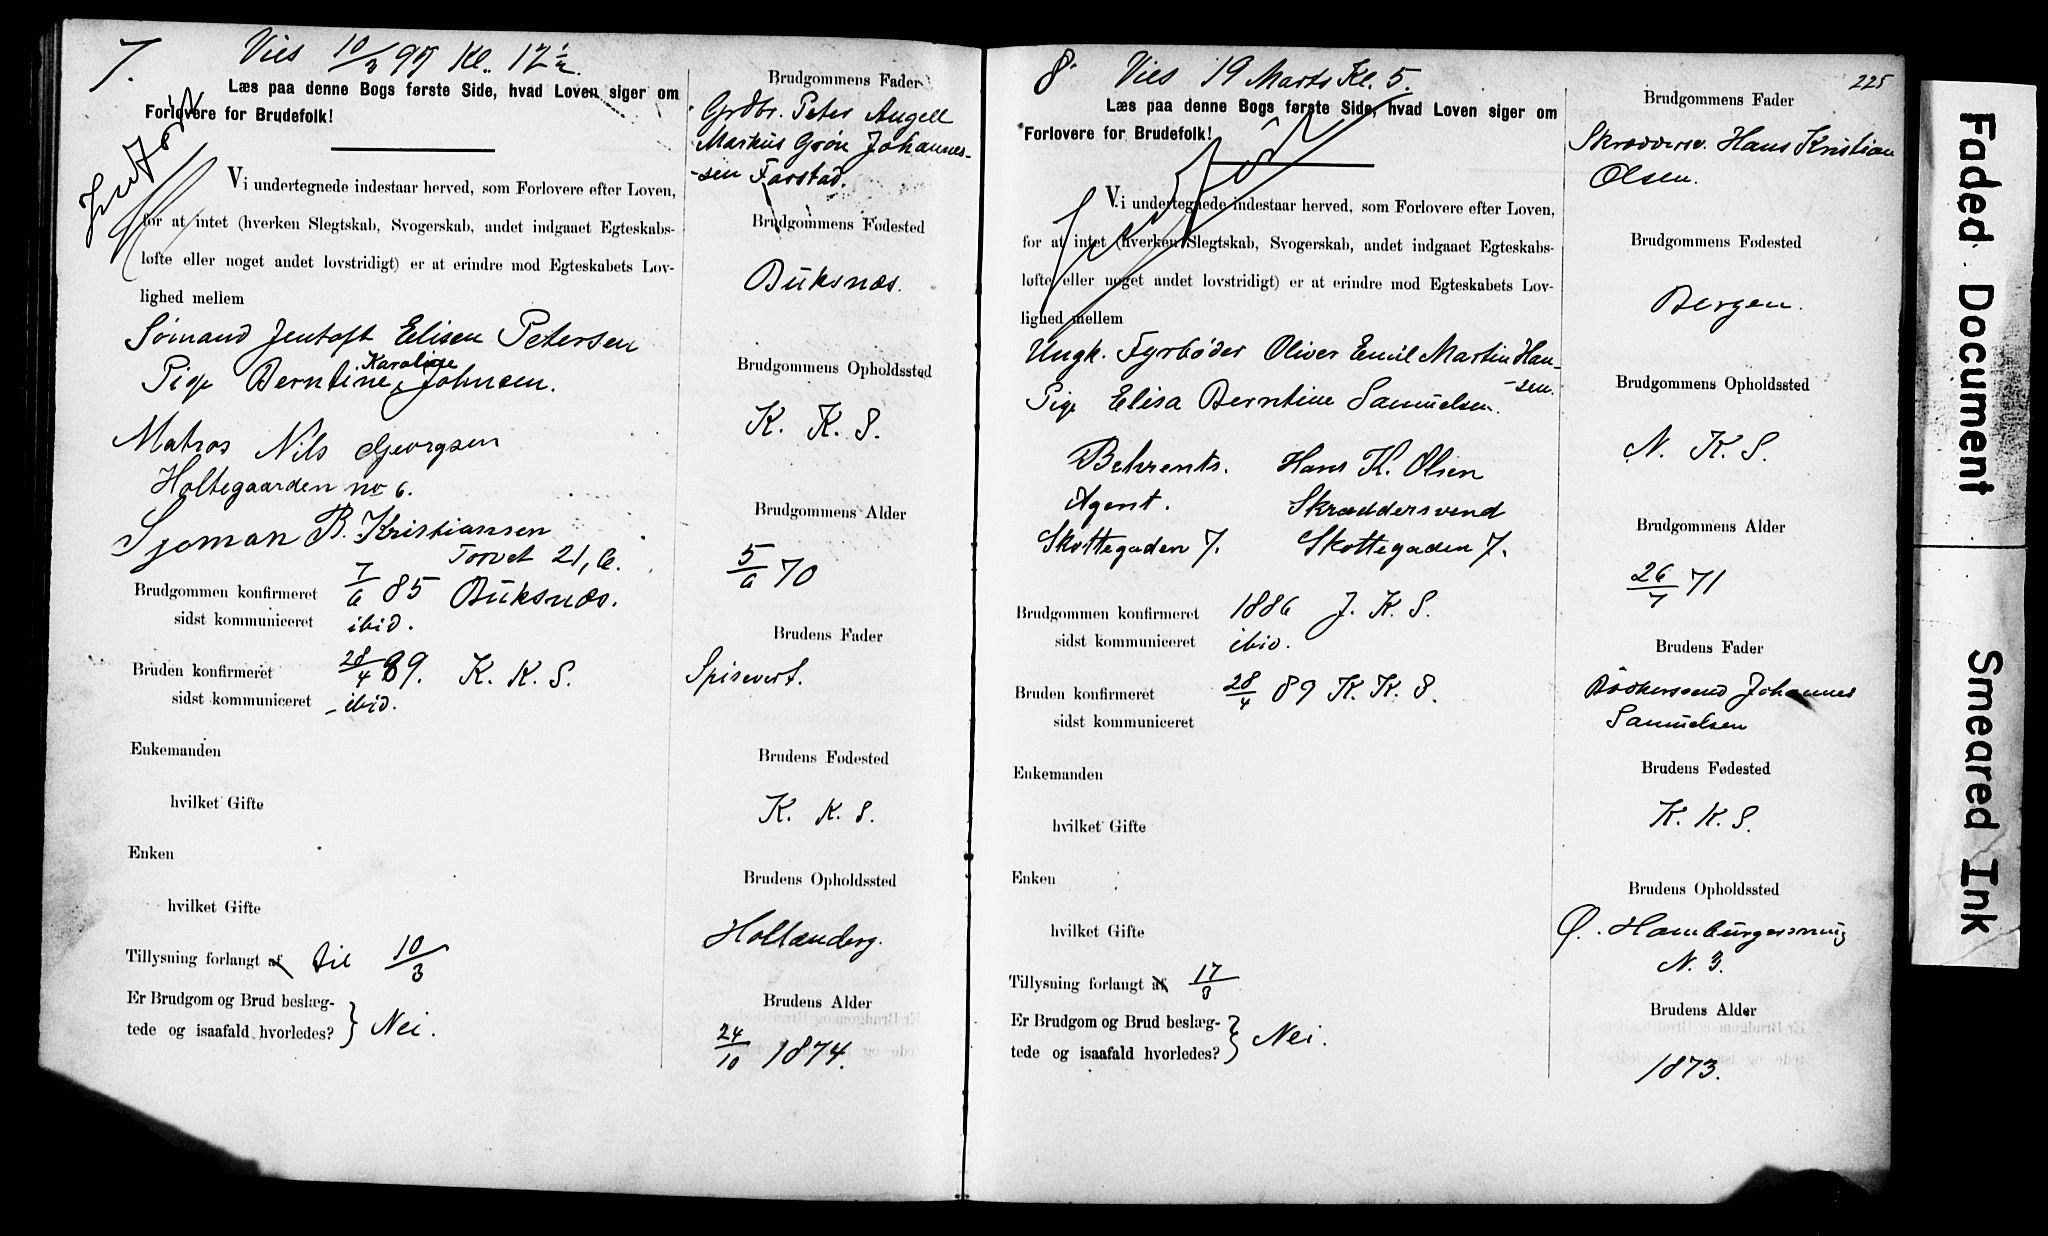 7.
Vies 10/3 97 Kl. 12 1/2.
Læs paa denne Bogs første Side, hvad Loven siger om
Forlovere for Brudefolk!
Indført
Vi undertegnede indestaar herved, som Forlovere efter Loven,
for at intet (hverken Slegtskab, Svogerskab, andet indgaaet Egteskabs-
løfte eller noget andet lovstridigt) er at erindre mod Egteskabets Lov-
lighed mellem
Sømand Jentoft Elisen Petersen
Karoline
Pige Berntine Johnsen.
Matros Nils Georgsen
Holtegaarden no 6.
Sjoman B. Kristiansen
Torvet 21, b.
Brudgommen konfirmeret 7/6 85 Buksnæs.
sidst kommuniceret ibid.
Bruden konfirmeret 28/4 89. K. K. S.
sidst kommuniceret ibid.
Enkemanden
hvilket Gifte
Enken
hvilket Gifte
Tillysning forlangt af til 10/3
Er Brudgom og Brud beslæg-
tede og isaafald hvorledes? } Nei.
Brudgommens Fader
Grdbr. Peter Angell
Markus Grøn Johannes-
-sen Farstad.
Brudgommens Fødested
Buksnæs.
Brudgommens Opholdssted
K. K. S.
Brudgommens Alder
5/6 70
Brudens Fader
Spisevert.
Brudens Fødested
K. K. S.
Brudens Opholdssted
Hollænderg.
Brudens Alder
24/10 1874.
225
8.
Vies 19 Marts Kl. 5.
Læs paa denne Bogs første Side, hvad Loven siger om
Forlovere for Brudefolk!
Indført
Vi undertegnede indestaar herved, som Forlovere efter Loven,
for at intet (hverken Slegtskab, Svogerskab, andet indgaaet Egteskabs-
løfte eller noget andet lovstridigt) er at erindre mod Egteskabets Lov-
lighed mellem
Ungk. Fyrbøder Oliver Emil Martin Han-
-sen.
Pige Elisa Berntine Samuelsen.
Behrents. Hans K. Olsen
Agent. Skræddersvend
Skottegaden 7. Skottegaden 7.
Brudgommen konfirmeret 1886 J. K. S.
sidst kommuniceret ibid.
Bruden konfirmeret 28/4 89 K. K. S.
sidst kommuniceret
Enkemanden
hvilket Gifte
Enken
hvilket Gifte
Tillysning forlangt af 17/3
Er Brudgom og Brud beslæg-
tede og isaafald hvorledes? } Nei.
Brudgommens Fader
Skræddersv. Hans Kristian
Olsen.
Brudgommens Fødested
Bergen.
Brudgommens Opholdssted
N. K. S.
Brudgommens Alder
26/7 71
Brudens Fader
Bødkersvend Johannes
Samuelsen
Brudens Fødested
K. K. S.
Brudens Opholdssted
Ø. Hamburgersmug
N. 3.
Brudens Alder
1873.
Faded Document
Smeared Ink